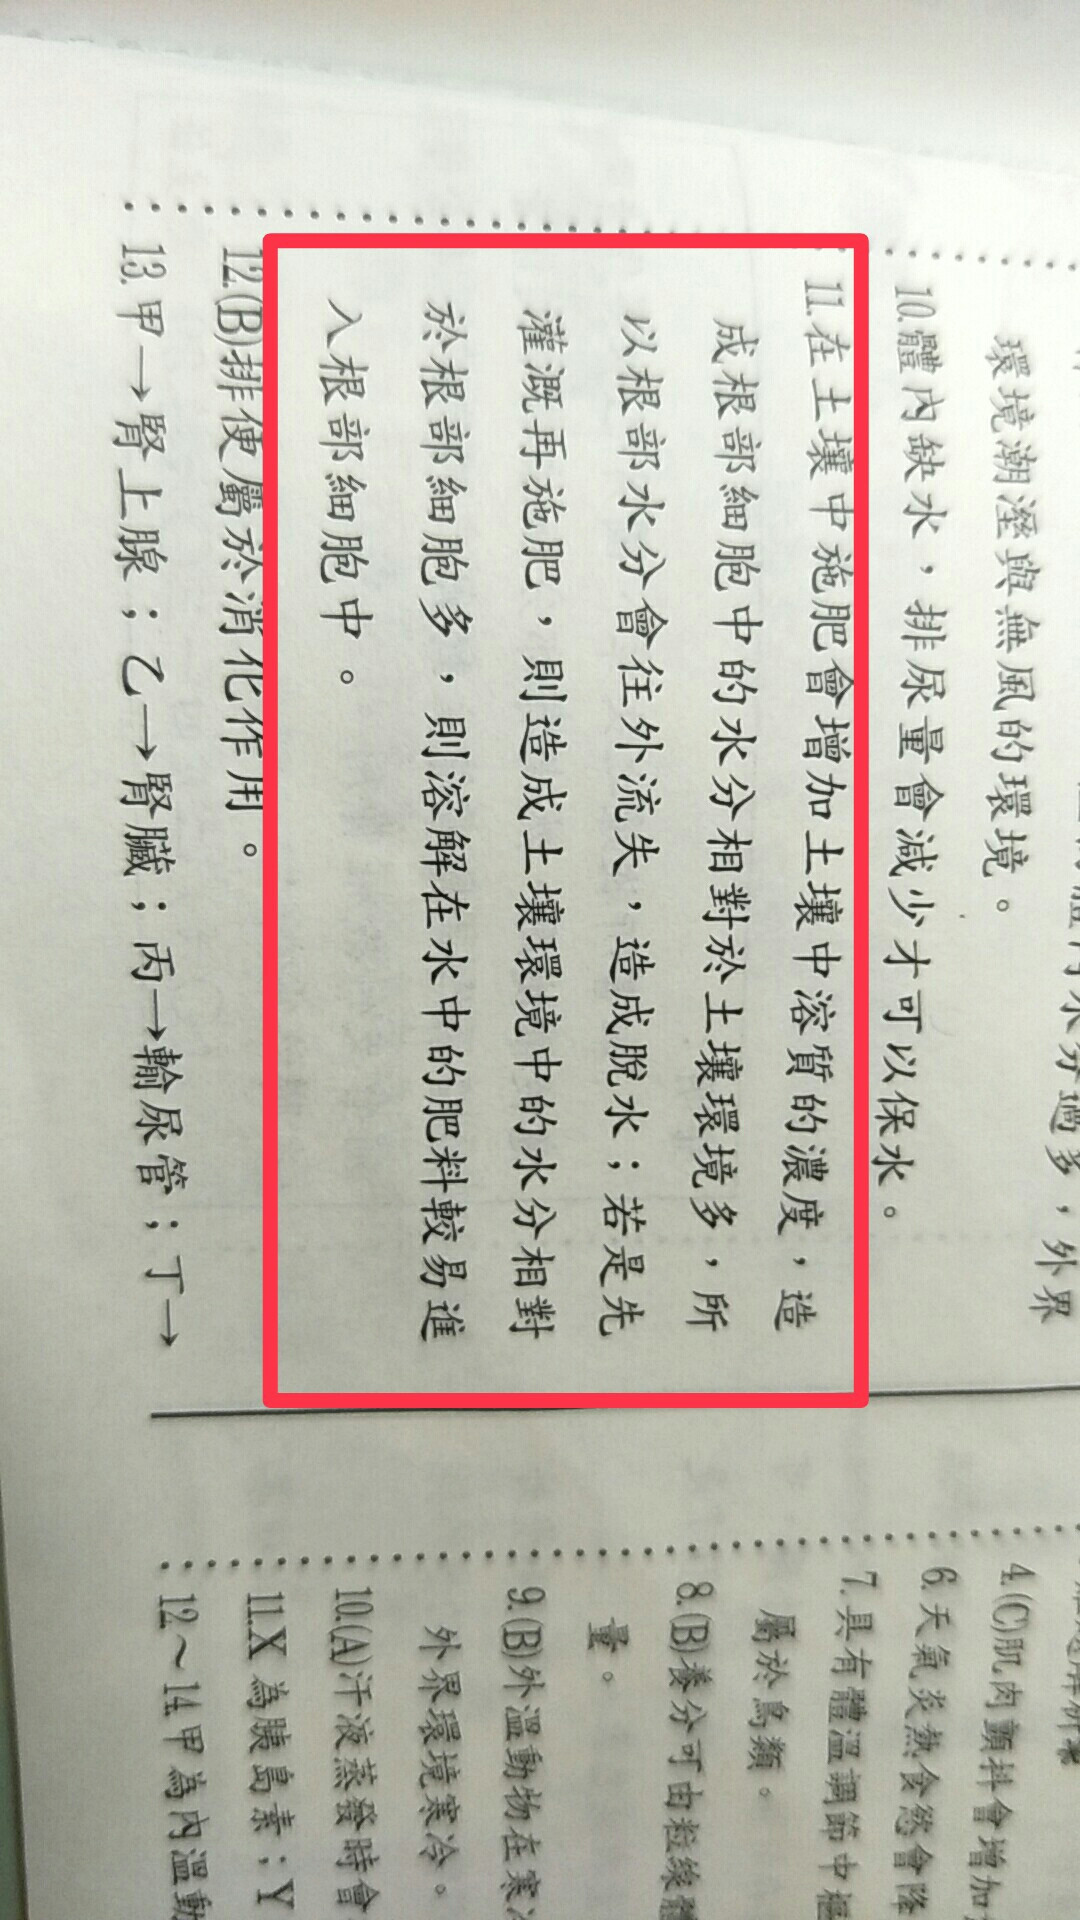 環境潮溼與無風的環境。
10.體內缺水，排尿量會減少才可以保水。
11.在土壤中施肥會增加土壤中溶質的濃度，造
成根部細胞中的水分相對於土壤環境多，所
以根部水分會往外流失，造成脫水；若是先
灌溉再施肥，則造成土壤環境中的水分相對
於根部細胞多，則溶解在水中的肥料較易進
入根部細胞中。
12.(B)排便屬於消化作用。
13.甲→腎上腺；乙→腎臟；丙→輸尿管；丁→
4.(C)肌肉顫抖會增加
6.天氣炎熱食慾會降
7.具有體溫調節中樞
屬於鳥類。
8.(B)養分可由粒線體
量。
9.(B)外溫動物在寒冷
外界環境寒冷。
10.(A)汗液蒸發時會
11.X 為胰島素；Y
12～14.甲為內溫動